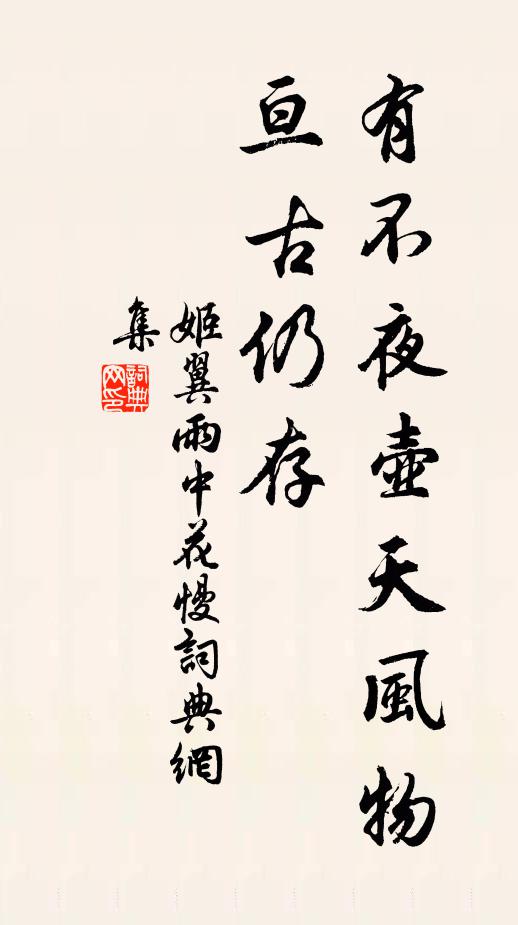 有不夜壺天風物
亘古仍存
姬翼雨中花慢詞典網
集
詞典
网印